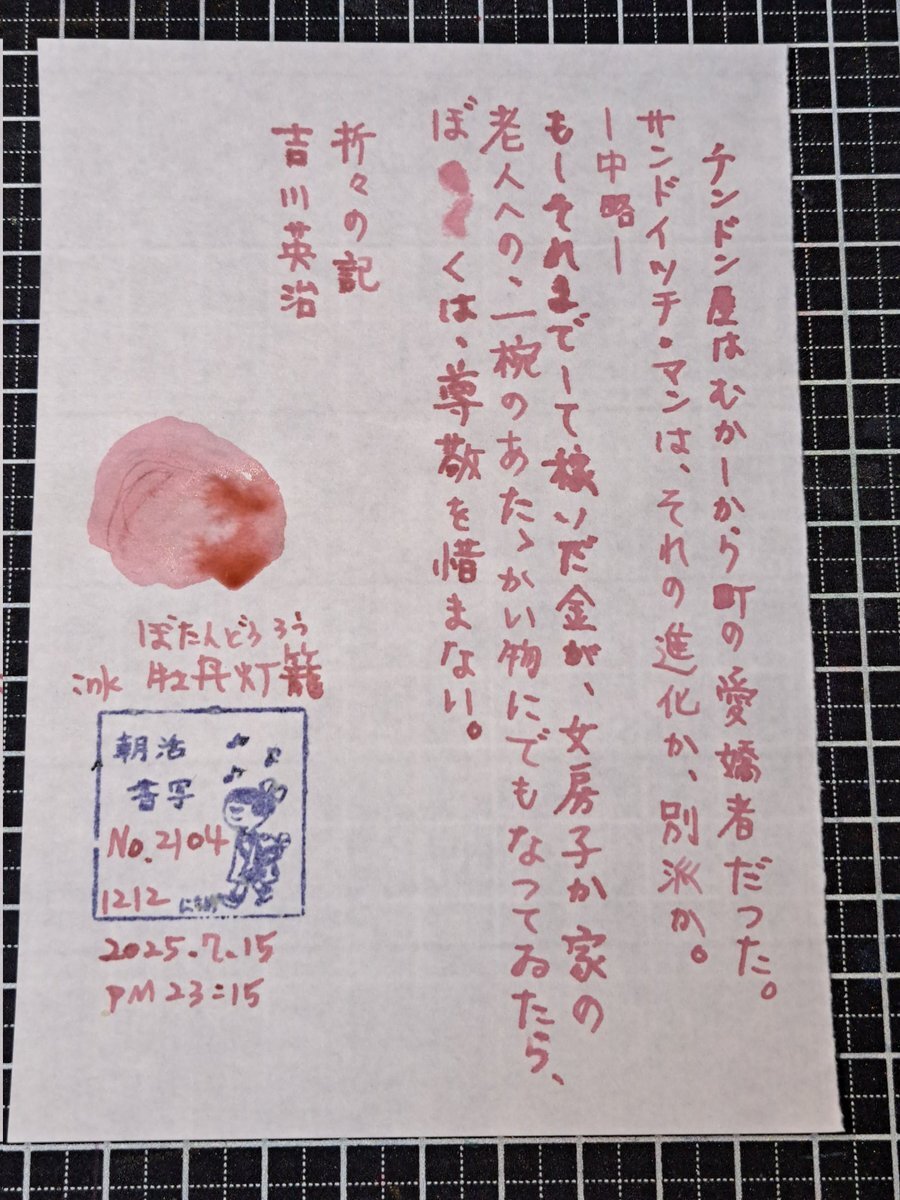 チンドン屋はむかしから町の愛嬌者だった。
サンドイッチ・マンは、それの進化か、別派か。
ー中略ー
もしそれまでして稼いだ金が、女房子か家の
老人への、一椀のあたゝかい物にでもなってゐたら、
ぼくは、尊敬を惜まない。
折々の記
吉川英治
ぼたんどうろう
ink 牡丹灯籠
朝活
書写
No.2104
1212
2025.7.15
PM 23:15